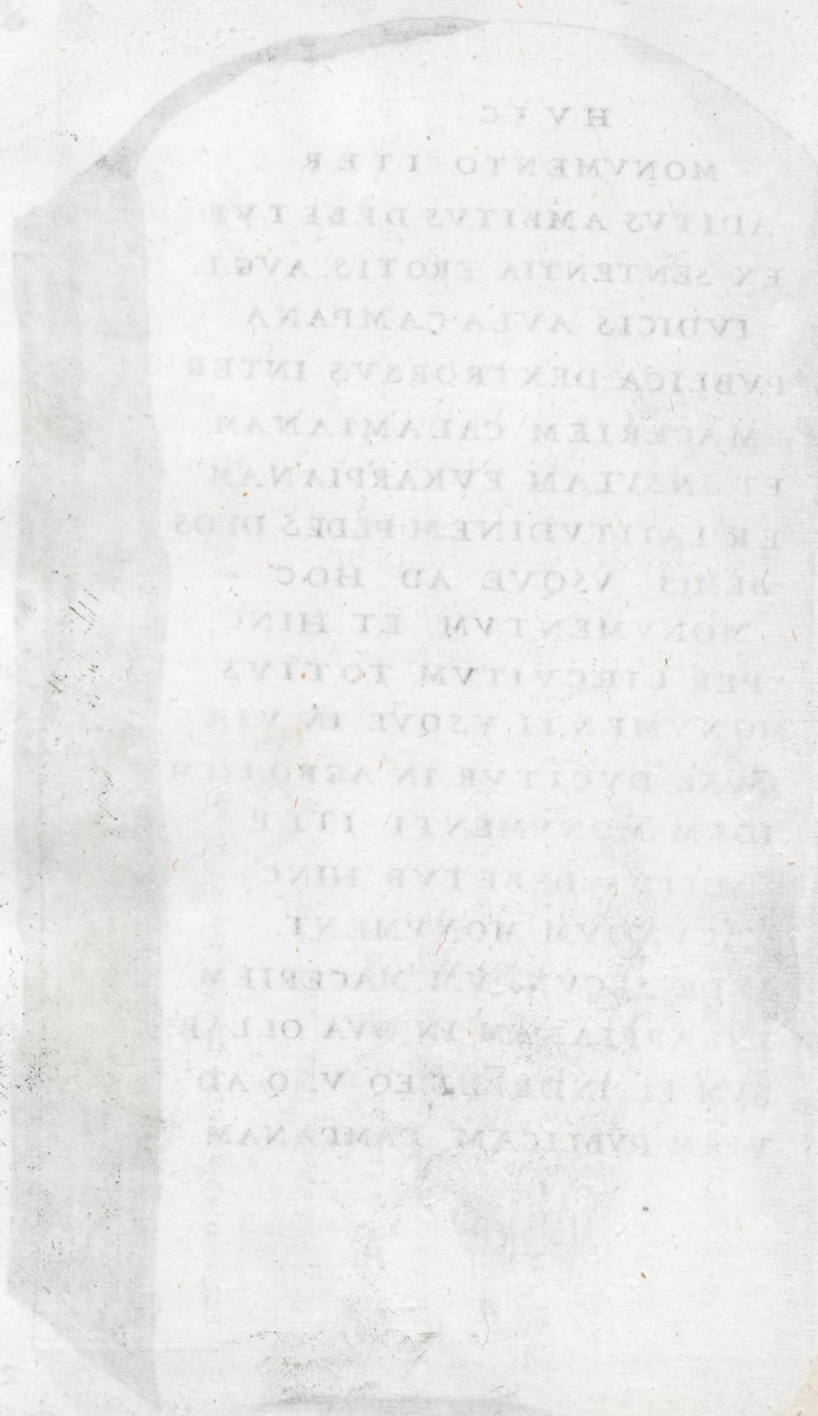 HVIC
MONVMENTO ITER
ADITVS AMBITVS DEBETVR
EX SENTENTIA EROTIS AVG L
IVDICIS A VIA CAMPANA
PVBLICA DEXTRORSVS INTER
MACERIEM CALAMIANAM
ET INSVLAM EVKARPIANAM
PER LATITVDINEM PEDES DVOS
SEMIS VSQVE AD HOC
MONVMENTVM ET HINC
PER CIRCVITVM TOTIVS
MONVMENTI VSQVE IN VIA
QVAE DVCITVR IN AGRO ITEM
MONVMENTI ITER
DEBETVR HINC
MONVMENT
MACERIEM
IN QVA OLLAE
SVNT ET INDE EO VSQ AD
VIAM PVBLICAM CAMPANAM